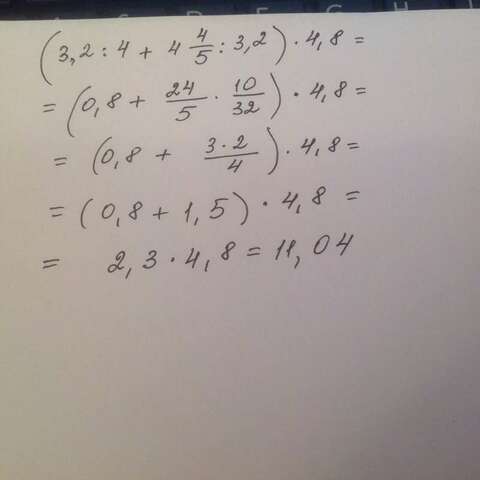 (3,2 : 4 + 4 4/5 : 3,2) · 4,8 =
= (0,8 + 24/5 · 10/32) · 4,8 =
= (0,8 + 3·2/4) · 4,8 =
= (0,8 + 1,5) · 4,8 =
= 2,3 · 4,8 = 11,04